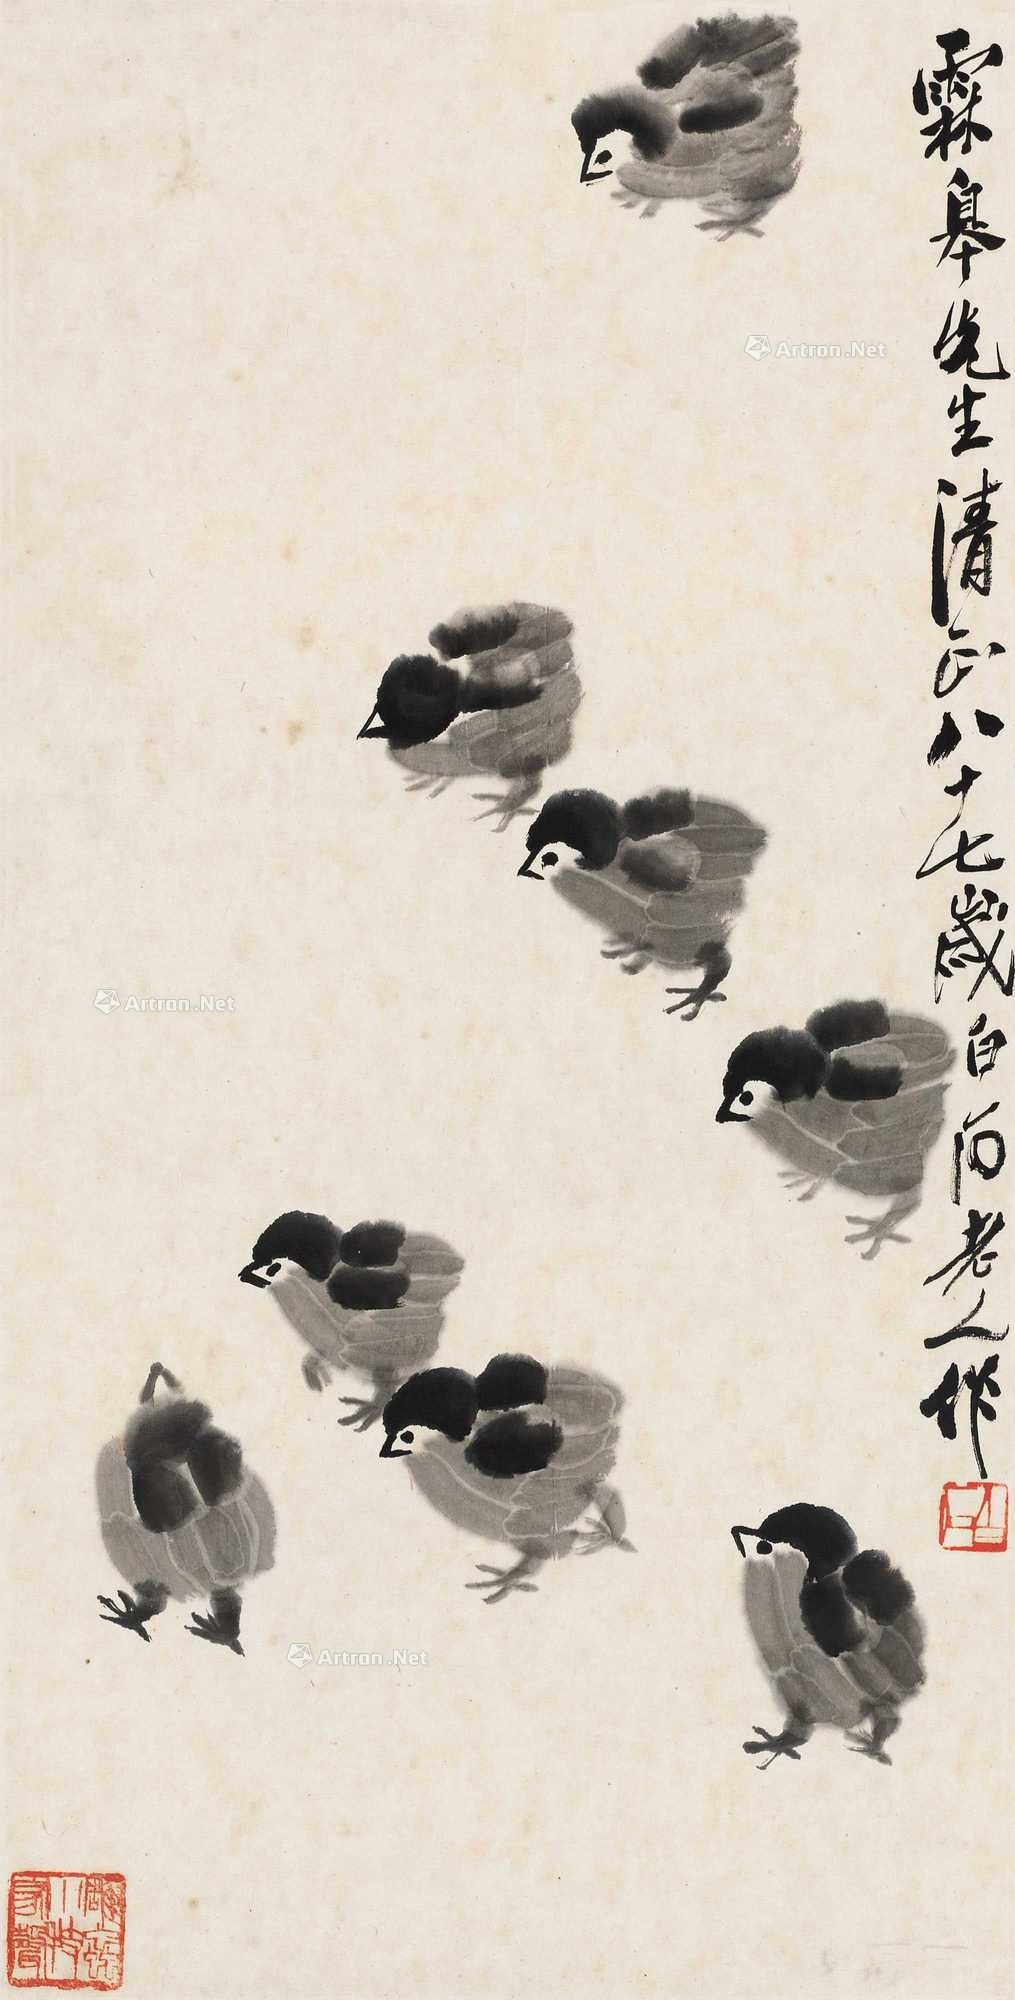 霖皋先生清正八十七歲白石老人作
白石
Artron.Net
Artron.Net
Artron.Net